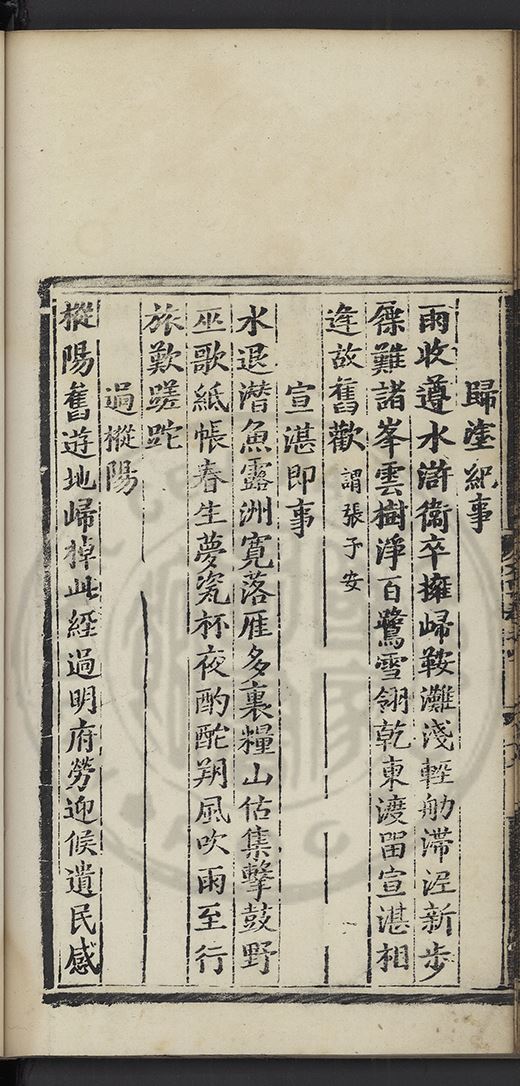 歸塗紀事
雨收遵水滸衞卒擁歸鞍灘淺輕舠滯涇新步
屧難諸峯雲樹淨百鷺雪翎乾東渡畱宣湛相
逢故舊歡 謂張子安
宣湛即事
水退潜魚露洲寛落雁多裹糧山估集擊鼓野
巫歌紙帳春生夢瓷杯夜酌酡朔風吹雨至行
旅歎蹉跎
過樅陽
樅陽舊遊地歸棹此經過明府勞迎候遺民感